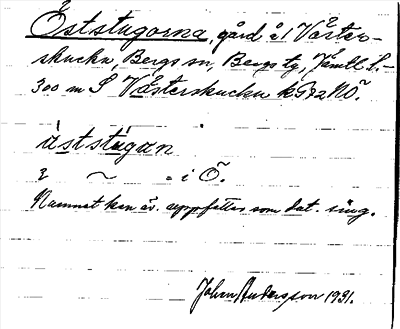 Öststugorna, gård å 1 Väster-
skucku, Bergs sn, Bergs tg, Jämtl. l.-
300 m S Västerskucku k
äststúgạn
i Ö.
Namnet kan äv. uppfattas som dat. sing.
Johan Andersson 1931.